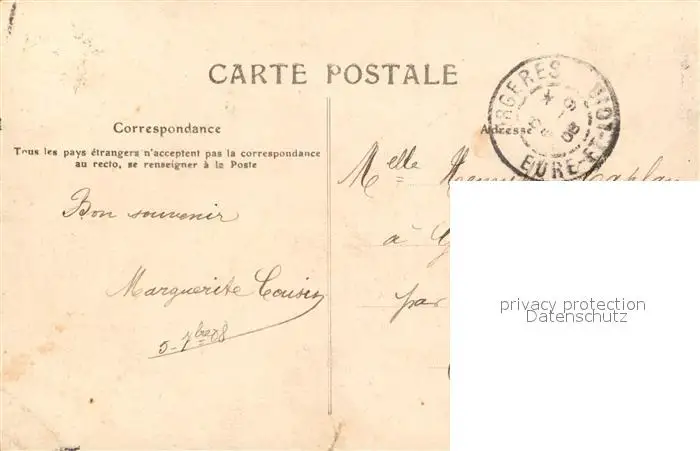 CARTE POSTALE
Correspondance
Tous les pays étrangers n'acceptent pas la correspondance
au recto, se renseigner à la Poste
Adresse
EURE-ET-LOIR
Bon souvenir
Marguerite Cousin
5-7bre 08
Melle
à
par
privacy protection
Datenschutz